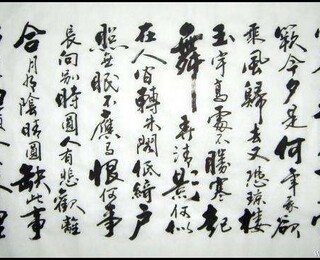 闕今夕是何年我欲
乘風歸去又恐瓊樓
玉宇高處不勝寒起
舞弄清影何似
在人間轉朱閣低綺戶
照無眠不應有恨何事
長向別時圓人有悲歡離
合月有陰晴圓缺此事